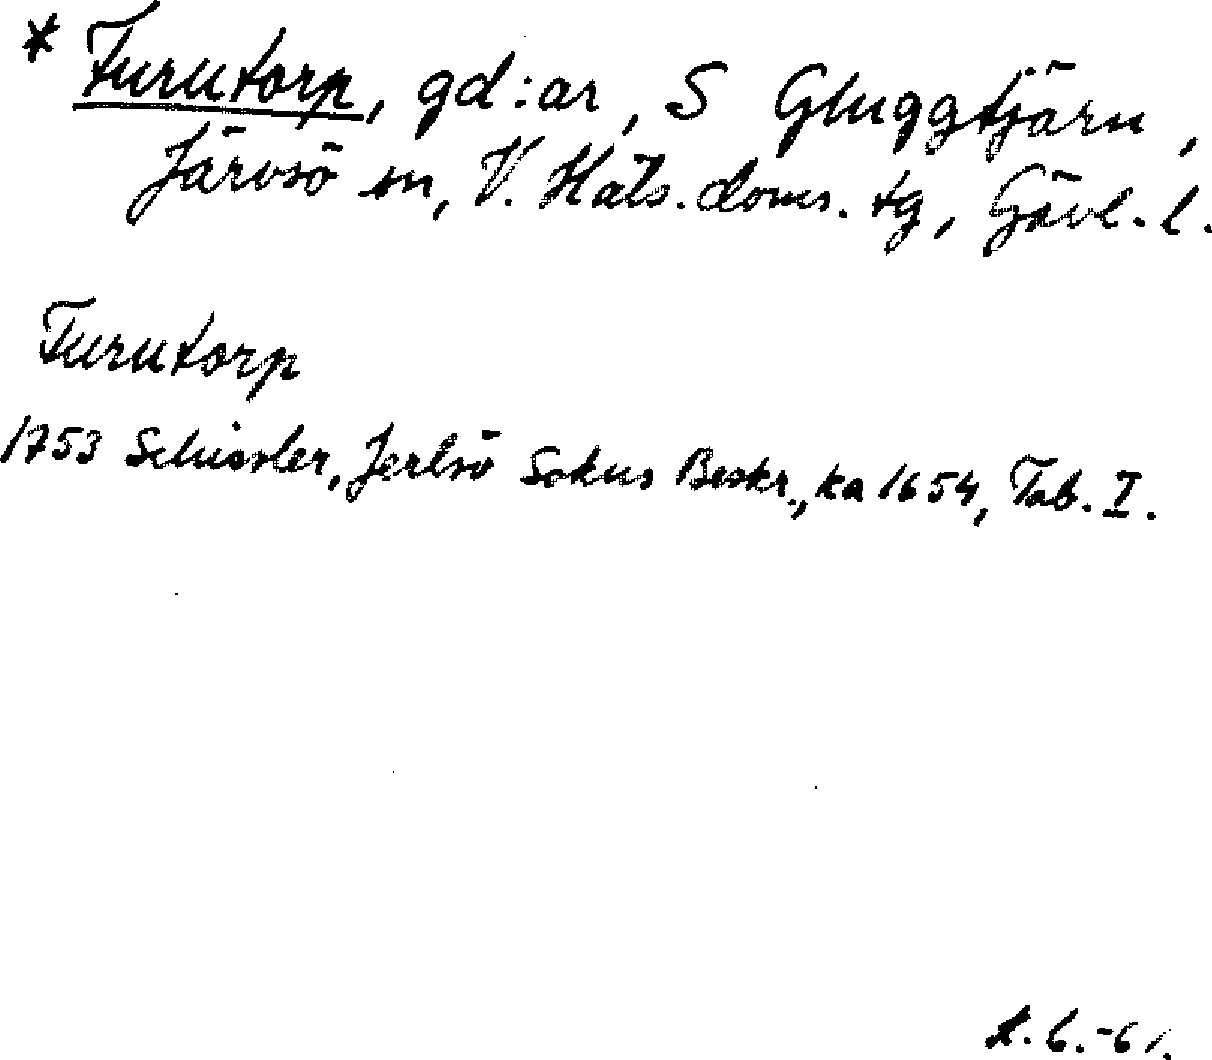 * Furutorp, gd:ar, S Gluggtjärn,
Järvsö sn, V. Häls. doms. tg, Gävl. l.
Furutorp
1753 Schissler, Jerlsö Sokns Beskr., ka 1654, Tab. I.
L. G. -61.